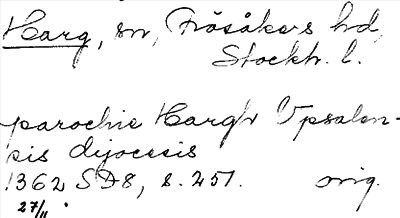 Harg, sn, Frösåkers hd,
Stockh. l.
parochie Hargh Vpsalen-
sis dyocesis
1362 SD8, s. 251. orig.
27/11.